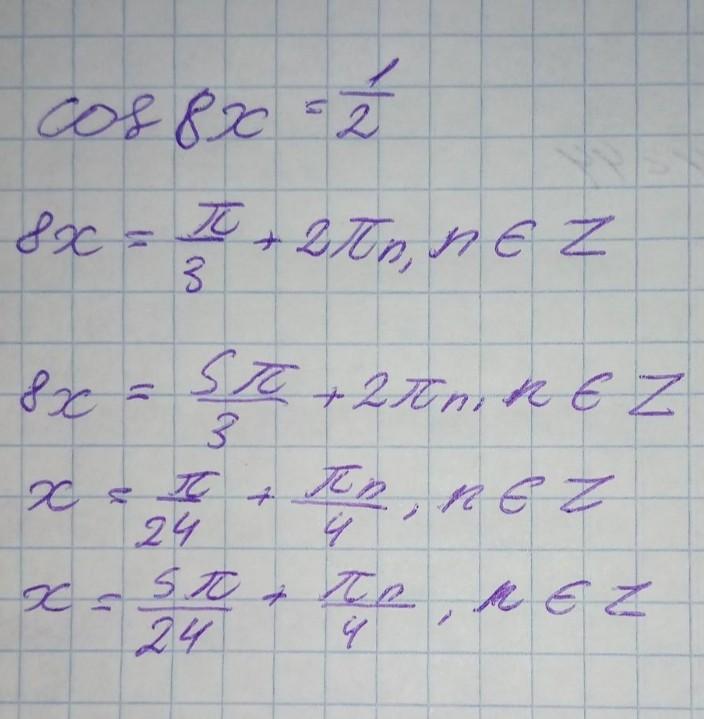 cos 8x = 1/2
8x = π/3 + 2πn, n ∈ Z
8x = 5π/3 + 2πn, n ∈ Z
x = π/24 + πn/4, n ∈ Z
x = 5π/24 + πn/4, n ∈ Z